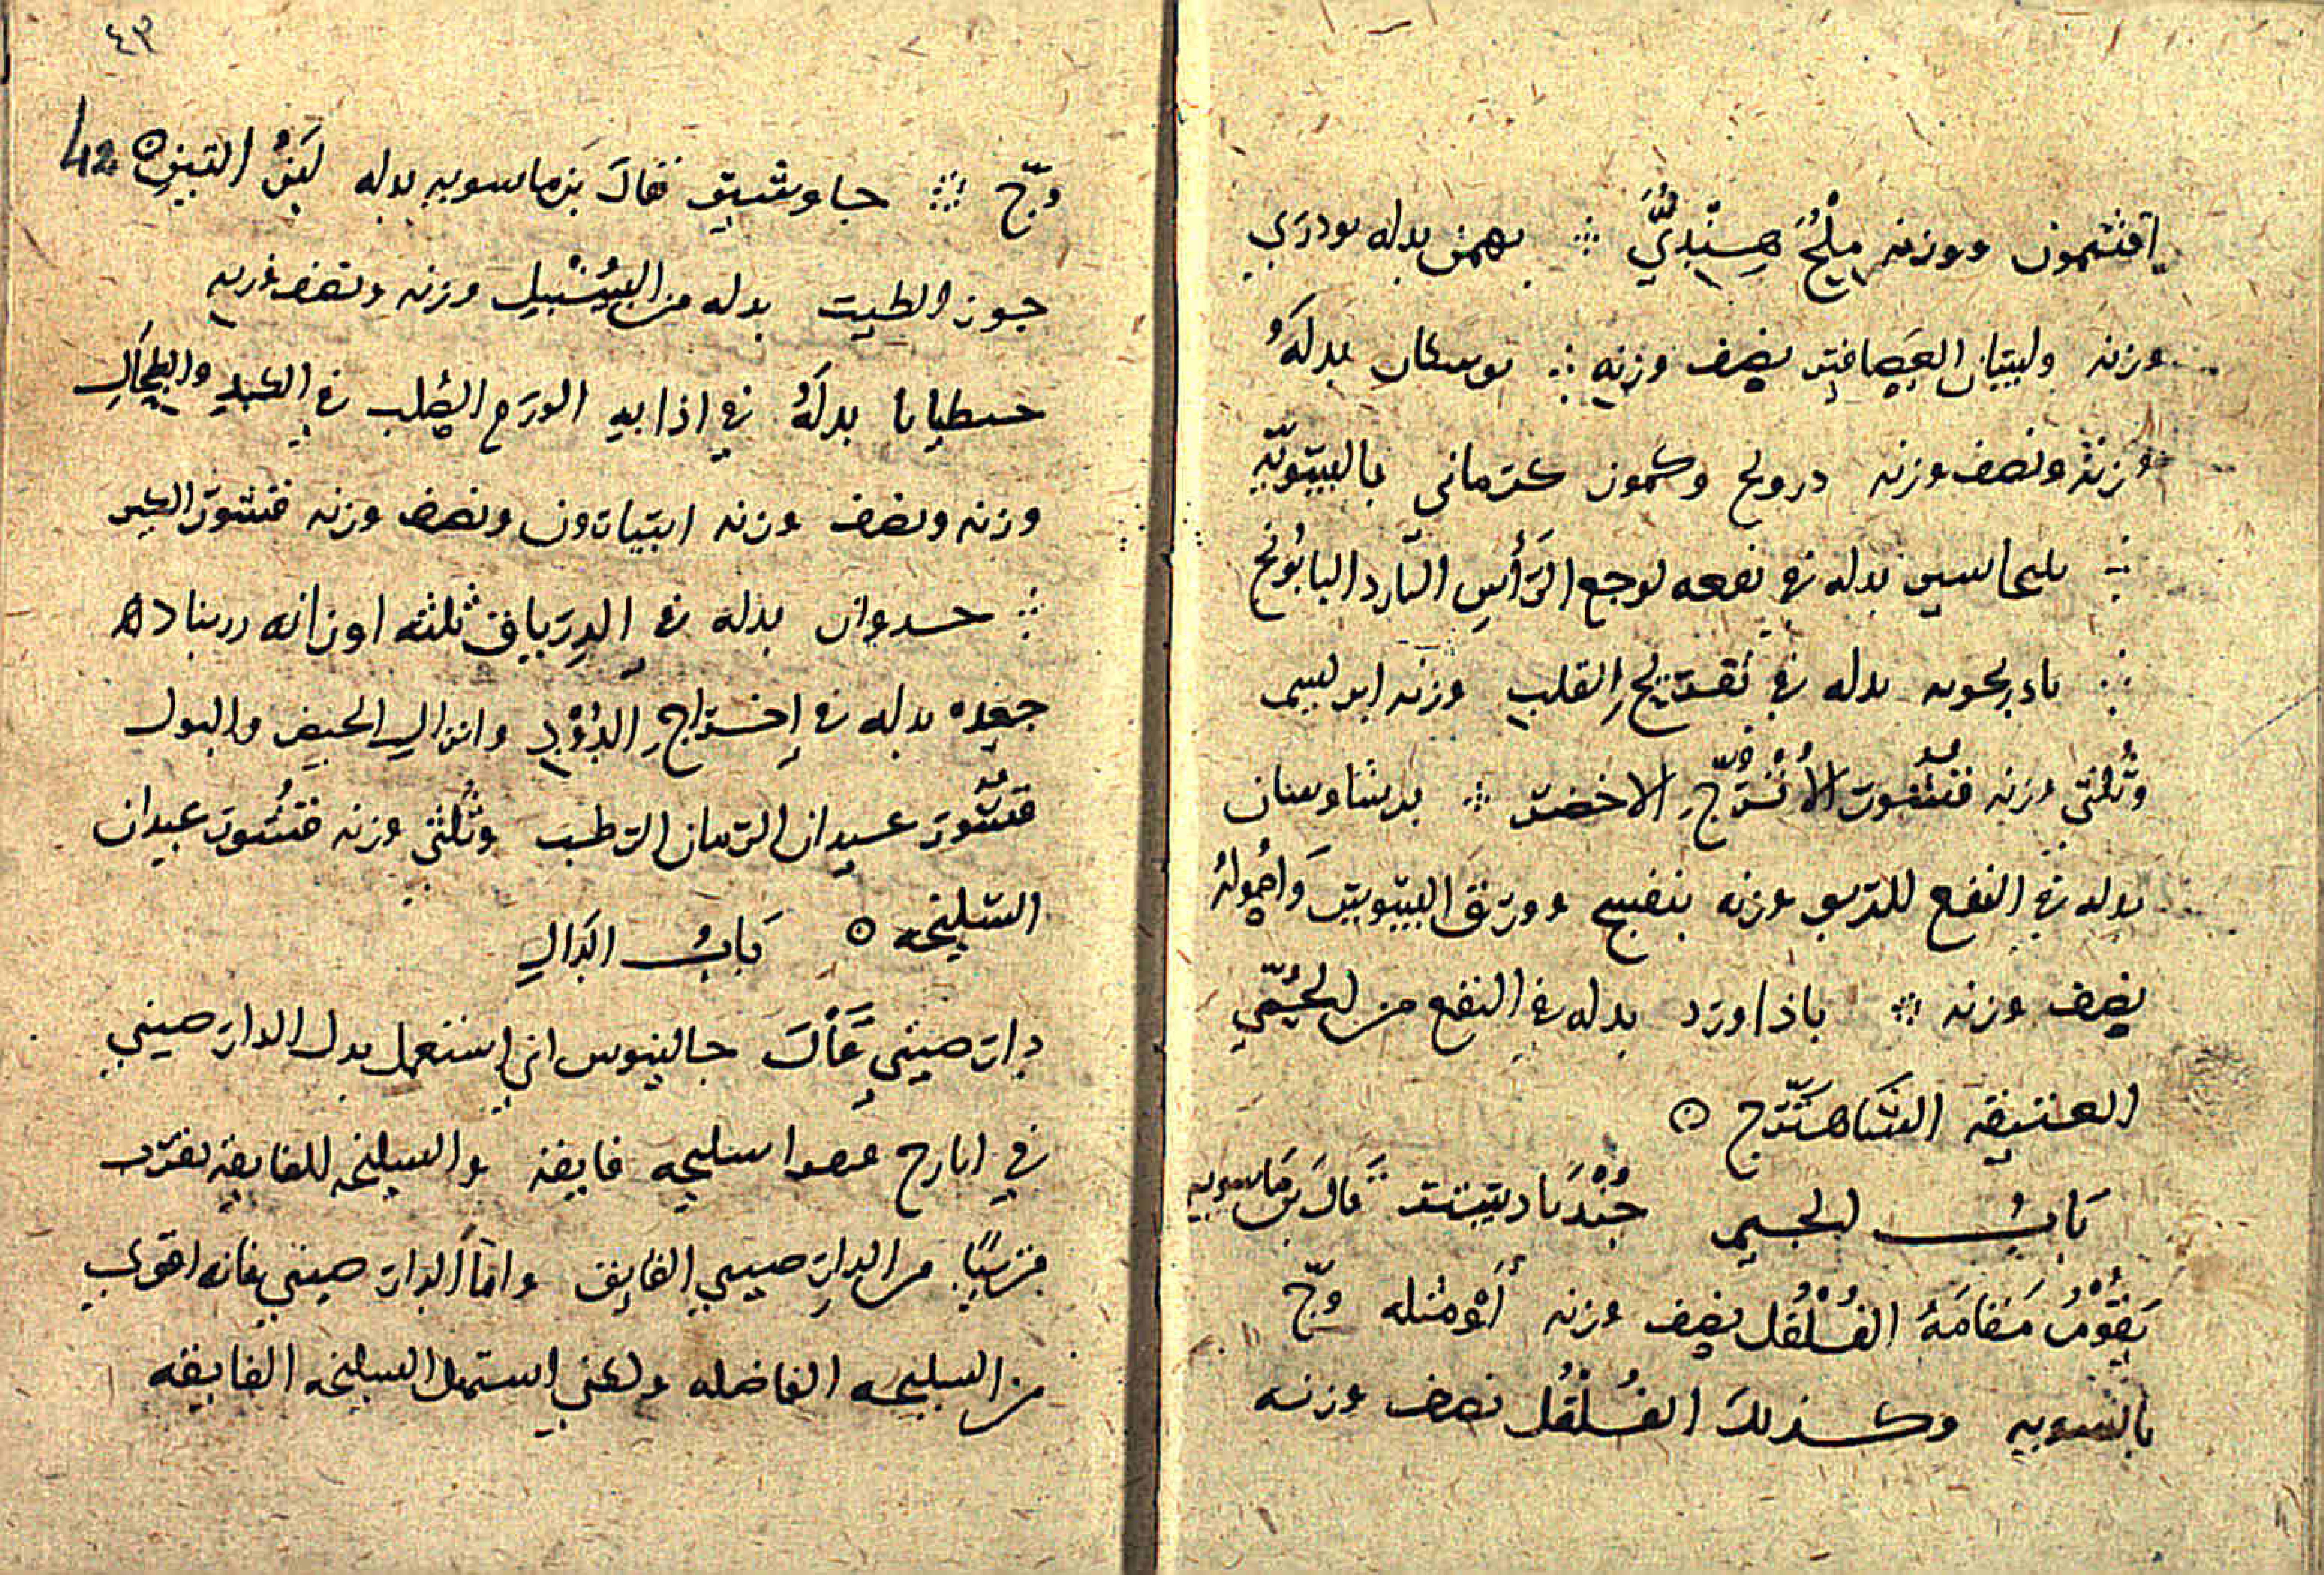 افتيمون ووزنه مِلْحُ هِنْدِيُّ ∴ بهمن بدله تودرى
وزنه ولسان العصافير نصف وزنه ∴ بدلهُ
وزنه ونصف وزنه درونج وكمون كرمانى بالسويّه
∴ بدله في نفعه لوجع الرَأسِ البارد البابُونج
∴ بادرنجويه بدله في تفريحِ القلب وزنه ابريسم
وثُلثى وزنه قشُور الأُتْرُجّ الاخضر ∴ برشاوسان
بدله في النفع للربو وزنه بنفسج وورق السوس وَاصُولهُ
نصف وزنه ∴ باذاورد بدله في النفع من الحُمّي
العتيقه الشَاهترّج ⊙
بَابُ الجيم جُنْدبَادستر قالَ بن مَاسويه
يَقُوْمُ مَقَامَهُ الفُلْفُل نصف وزنه أَوْمثله وجّ
بالسويه وكذلكَ الفُلْفُل نصف وزنه
٤٣
42
وجّ ∴ جاوشير قالَ بن ماسويه بدله لَبَنُ التين ⊙
جوز الطيب بدله من السُنْبل وزنه ونصف وزنه
بدلهُ في اذابه الورَم الصُلب في الكبد والطِحَالِ
وزنه ونصف وزنه ونصف وزنه قشور الكبر
∴ جدوار بدله في الدِرياق ثلثه اوزانه زرنباد
جعده بدله في إخراجِ الدُوْدِ وانزال الحيض والبول
قشُور عيدان الرمان الرطب وثُلثى وزنه قشُور عيدان
السليخه ⊙ بَابُ الدَالِ
دار صيني قَالَ جالينوس اني استعمل بدل الدار صيني
في ايارج سليخه فايقه والسليخه الفايقه تقرب
قريبًا من الدار صيني الفايق وامّا الدار صيني فانه اقوى
من السليخه الفاضله ولكني استعمل السليخه الفايقه